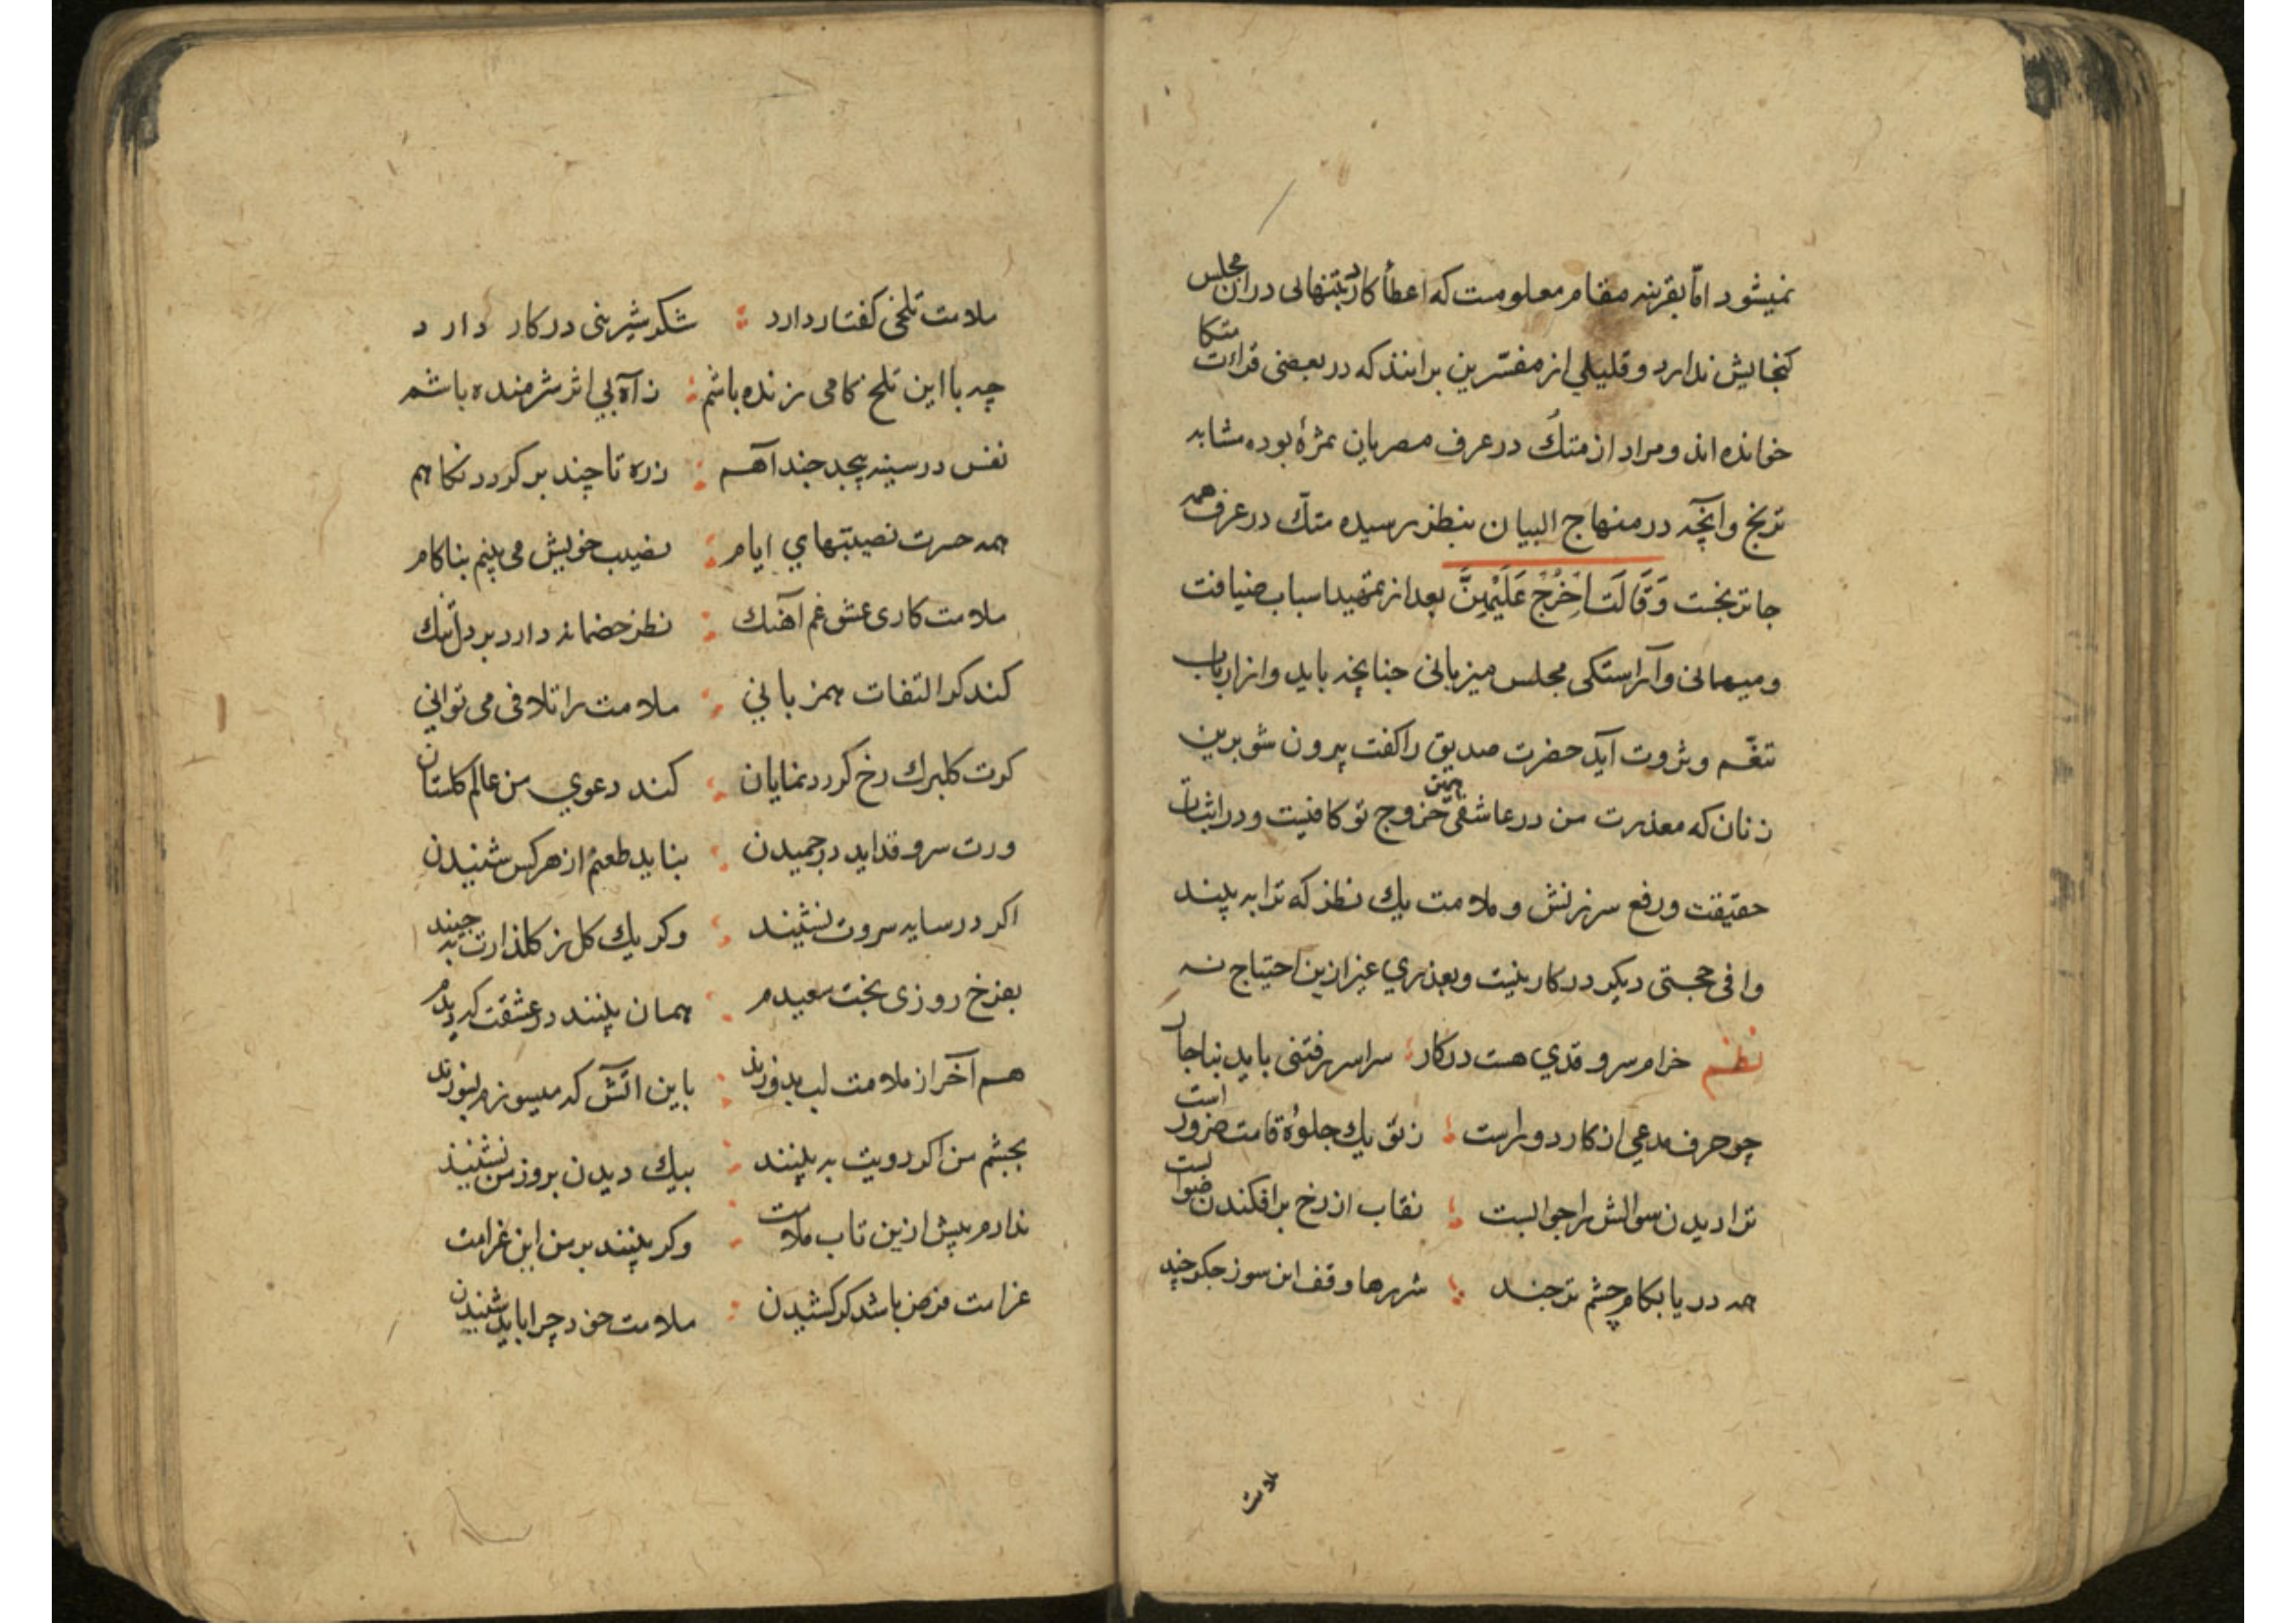 نمیشود امّا بقرینه مقام معلومست که اعطأ کارد بتنهائی دران مجلس
کنجایش ندارد و قلیلی از مفسّرین برانند که در بعضی قراءت متکا
خوانده اند و مراد از متكُ در عرف مصریان ثمرۀ بوده مشابه
ترنج و آنچّه در منهاج البیان بنظر رسیده متكّ در عرف همه
جا ترنجست وَقَالَتَ اخْرُجْ عَلَيْهِنَّ بعد از تمهید اسباب ضیافت
و میهمانی و آراستکی مجلس میزبانی چنانچه باید و از ارباب
تنعّم و ثروت آید حضرت صدیق را کفت بیرون شو برین
زنان که معذرت من در عاشقی همین خروج تو کافیست و در اثبات
حقیقت و رفع سرزنش و ملامت یك نظر که ترا به بیند
وافی حجتی دیکر در کار نیست و بعذری غیر ازین احتیاج نه
نظم خرام سرو قدی هست در کار سراسر رفتنی باید بناچار
چو حرف مدعی از کار دوراست ز تو یك جلوۀ قامت ضرور است
ترا دیدن سوالش را جوابست نقاب از رخ برافکندن صوابست
همه دریا بکام چشم تر چند شررها وقف این سوز جکر چند
ملامت
ملامت تلخی کفتار دارد شکر شیرینی در کار دارد
چه با این تلخ کامی زنده باشم ز آه بی اثر شرمنده باشم
نفس در سینه پیچد چند آهم ز ره تا چند بر کردد نکاهم
همه حسرت نصیبتهای ایام نصیب خویش می بینم بناکام
ملامت کاری عشق غم آهنك نظر خصمانه دارد بر دل تنك
کند کر التفات همزبانی ملامت را تلافی می توانی
کرت کلبرك رخ کردد نمایان کند دعوی من عالم کلستان
ورت سرو قد اید در چمیدن بنا ید طعنم از هر کس شنیدن
اکر در سایه سروت نشیند وکر یك کل ز کلذارت به چیند
بفرخ روزی بخت سعیدم همان بینند در عشقت که دیدم
هم آخر از ملامت لب بدوزند باین اتش که میسوزم بسوزند
بچشم من اکر رویت به بینند بیك دیدن بروز من نشینند
ندارم بیش ازین تاب ملامت وکر بینند بر من این غرامت
غرامت فرض باشد کر کشیدن ملامت خود چرا باید شنیدن